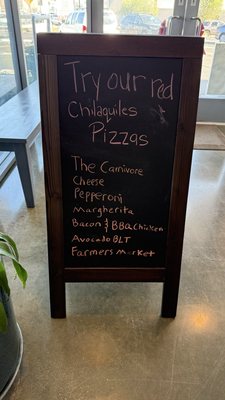 Try our red
Chilaquiles
Pizzas
The Carnivore
Cheese
Pepperoni
Margherita
Bacon & BBQ Chicken
Avocado BLT
Farmers Market